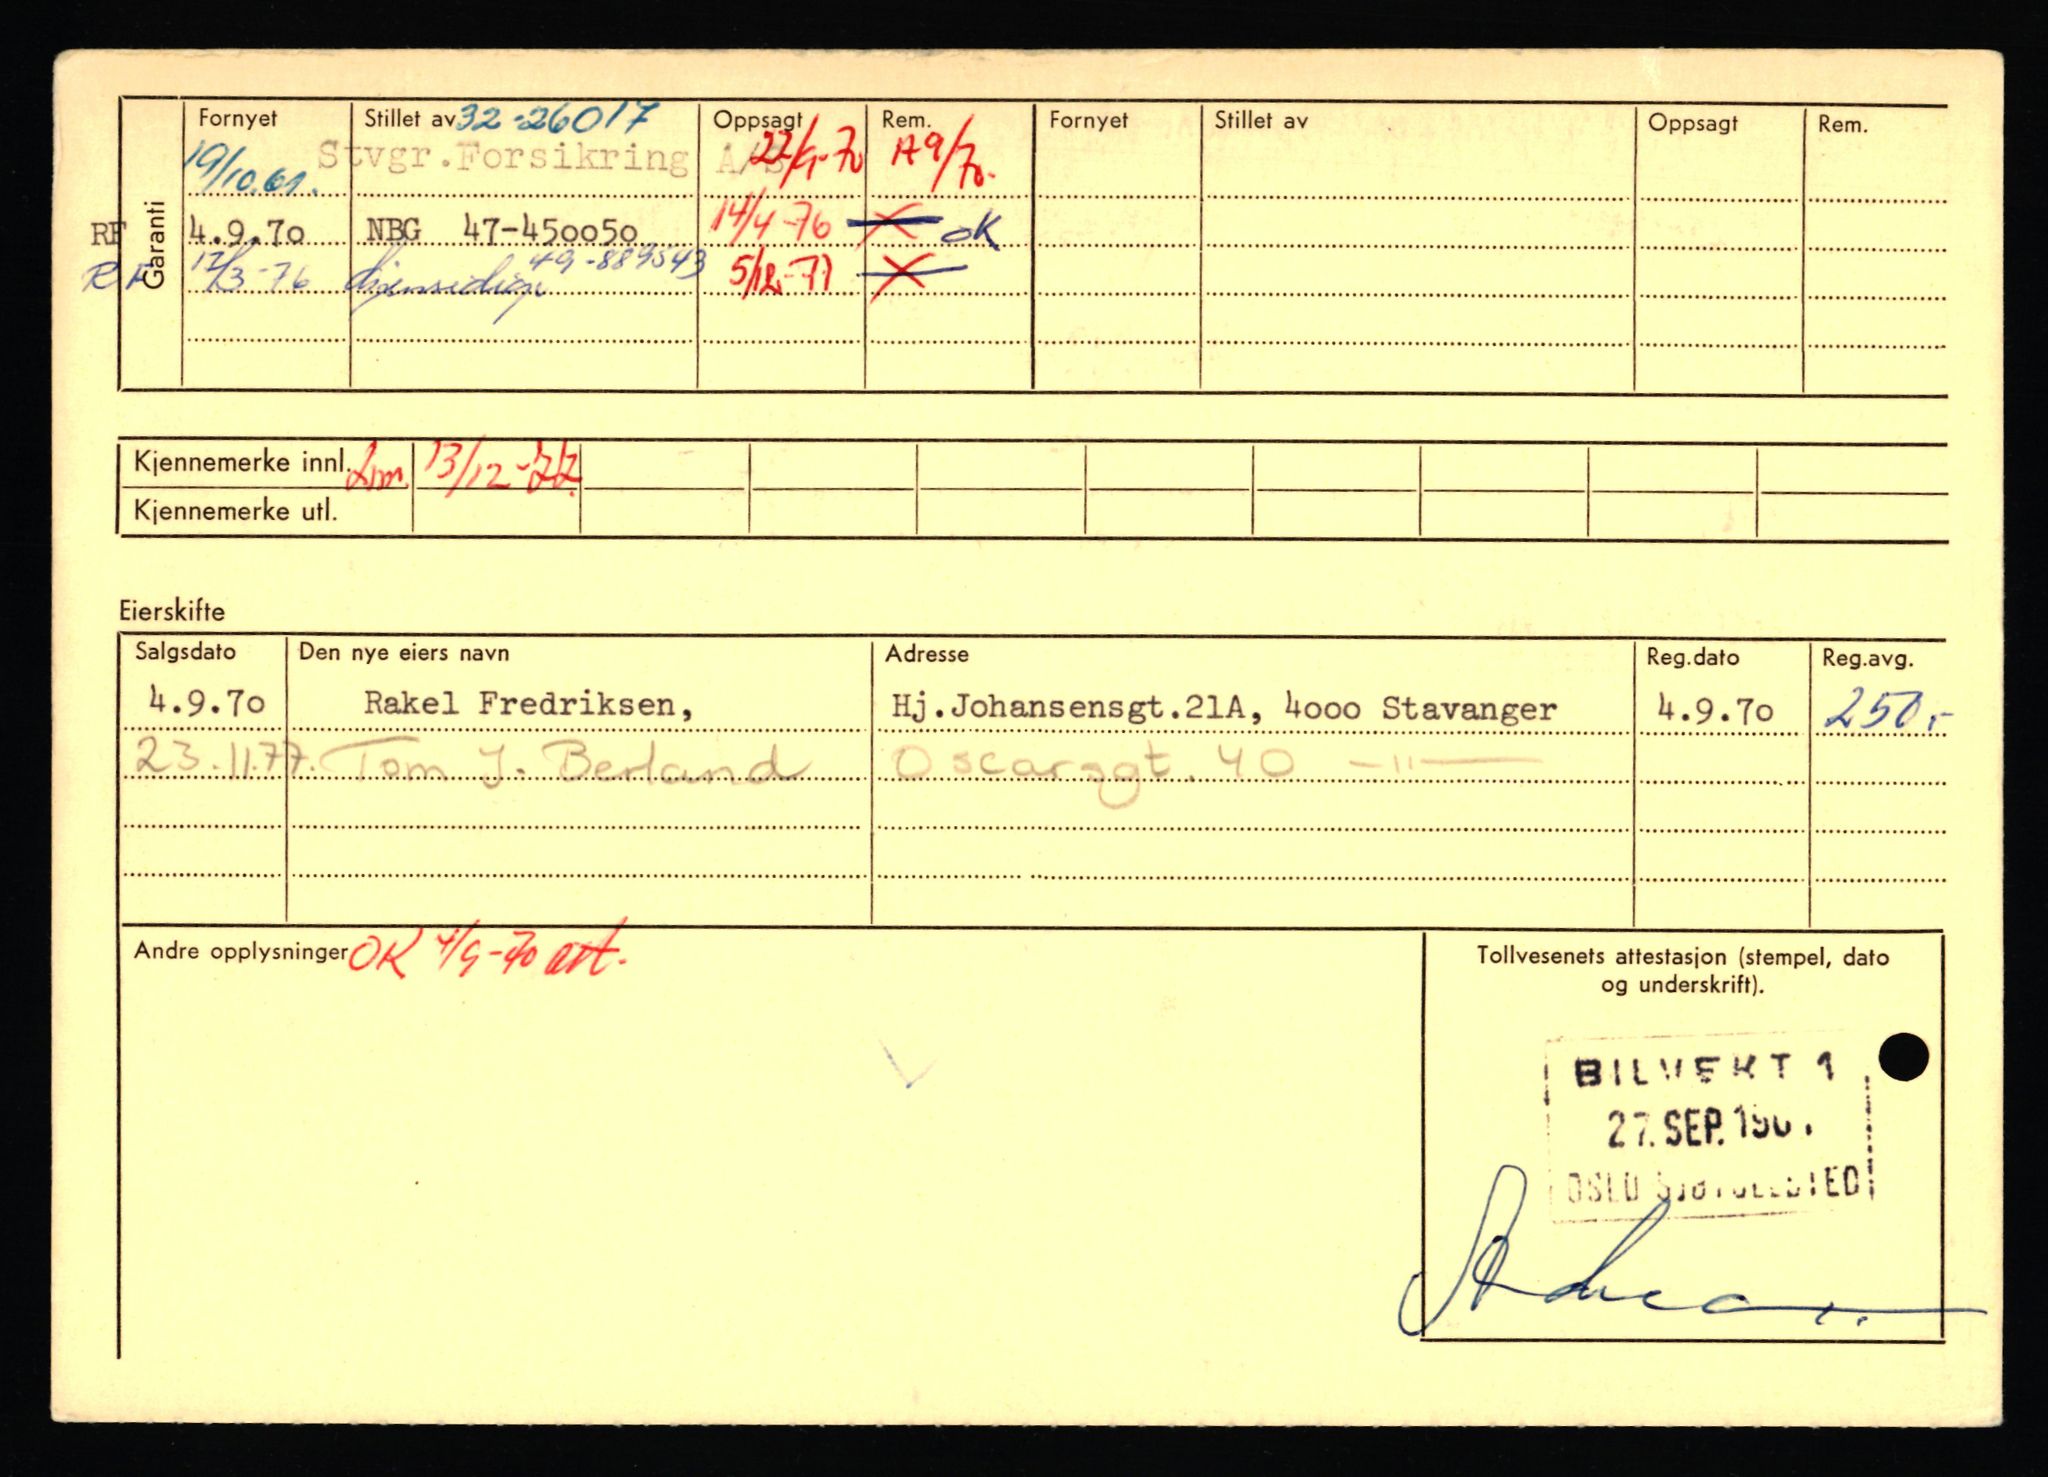 Fornyet Stillet av 32-26017 Oppsagt Rem. Fornyet Stillet av Oppsagt Rem.
19/10.61. Stvgr.Forsikring A/S 22/9-70 A9/70.
Garanti
RF 4.9.70 NBG 47-450050 14/4-76 X OK
RF 12/3-76 49-889543 5/12-77 X
Kjennemerke innl. 13/12-77.
Kjennemerke utl.
Eierskifte
Salgsdato Den nye eiers navn Adresse Reg.dato Reg.avg.
4.9.70 Rakel Fredriksen, Hj.Johansensgt.21A, 4000 Stavanger 4.9.70 250,-
23.11.77. Tom J. Berland Oscarsgt. 40 -"-
Andre opplysninger OK 4/9-70
Tollvesenets attestasjon (stempel, dato
og underskrift).
BILVEKT 1
27. SEP. 196
OSLO SJØTOLLSTED